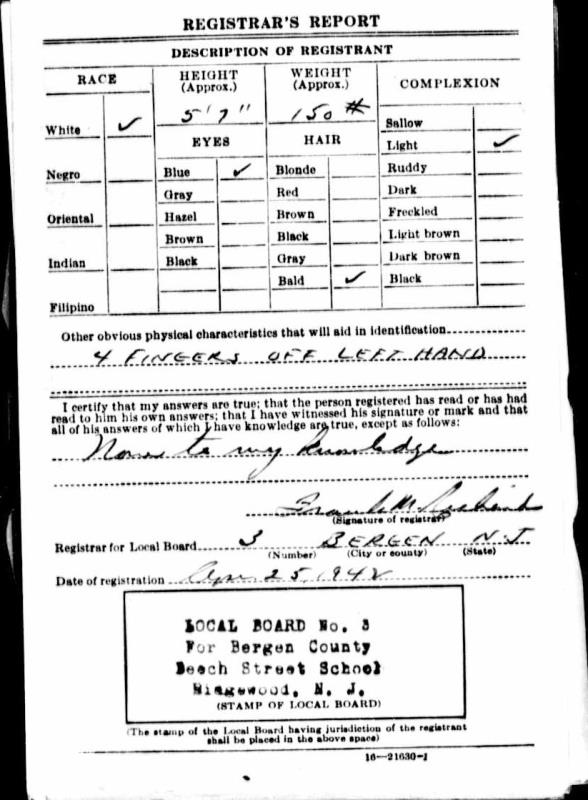 REGISTRAR'S REPORT
DESCRIPTION OF REGISTRANT
RACE
HEIGHT
(Approx.)
WEIGHT
(Approx.)
COMPLEXION
5'7"
150 #
White ✓
EYES
HAIR
Sallow
Light ✓
Negro
Blue ✓
Blonde
Ruddy
Gray
Red
Dark
Oriental
Hazel
Brown
Freckled
Brown
Black
Light brown
Indian
Black
Gray
Dark brown
Bald ✓
Black
Filipino
Other obvious physical characteristics that will aid in identification
4 FINGERS OFF LEFT HAND
I certify that my answers are true; that the person registered has read or has had
read to him his own answers; that I have witnessed his signature or mark and that
all of his answers of which I have knowledge are true, except as follows:
None to my knowledge
Frank M.
(Signature of registrar)
Registrar for Local Board 3 BERGEN N J
(Number) (City or county) (State)
Date of registration Apr 25, 1942
LOCAL BOARD No. 3
For Bergen County
Beech Street School
Ridgewood, N. J.
(STAMP OF LOCAL BOARD)
(The stamp of the Local Board having jurisdiction of the registrant
shall be placed in the above space)
16—21630-1